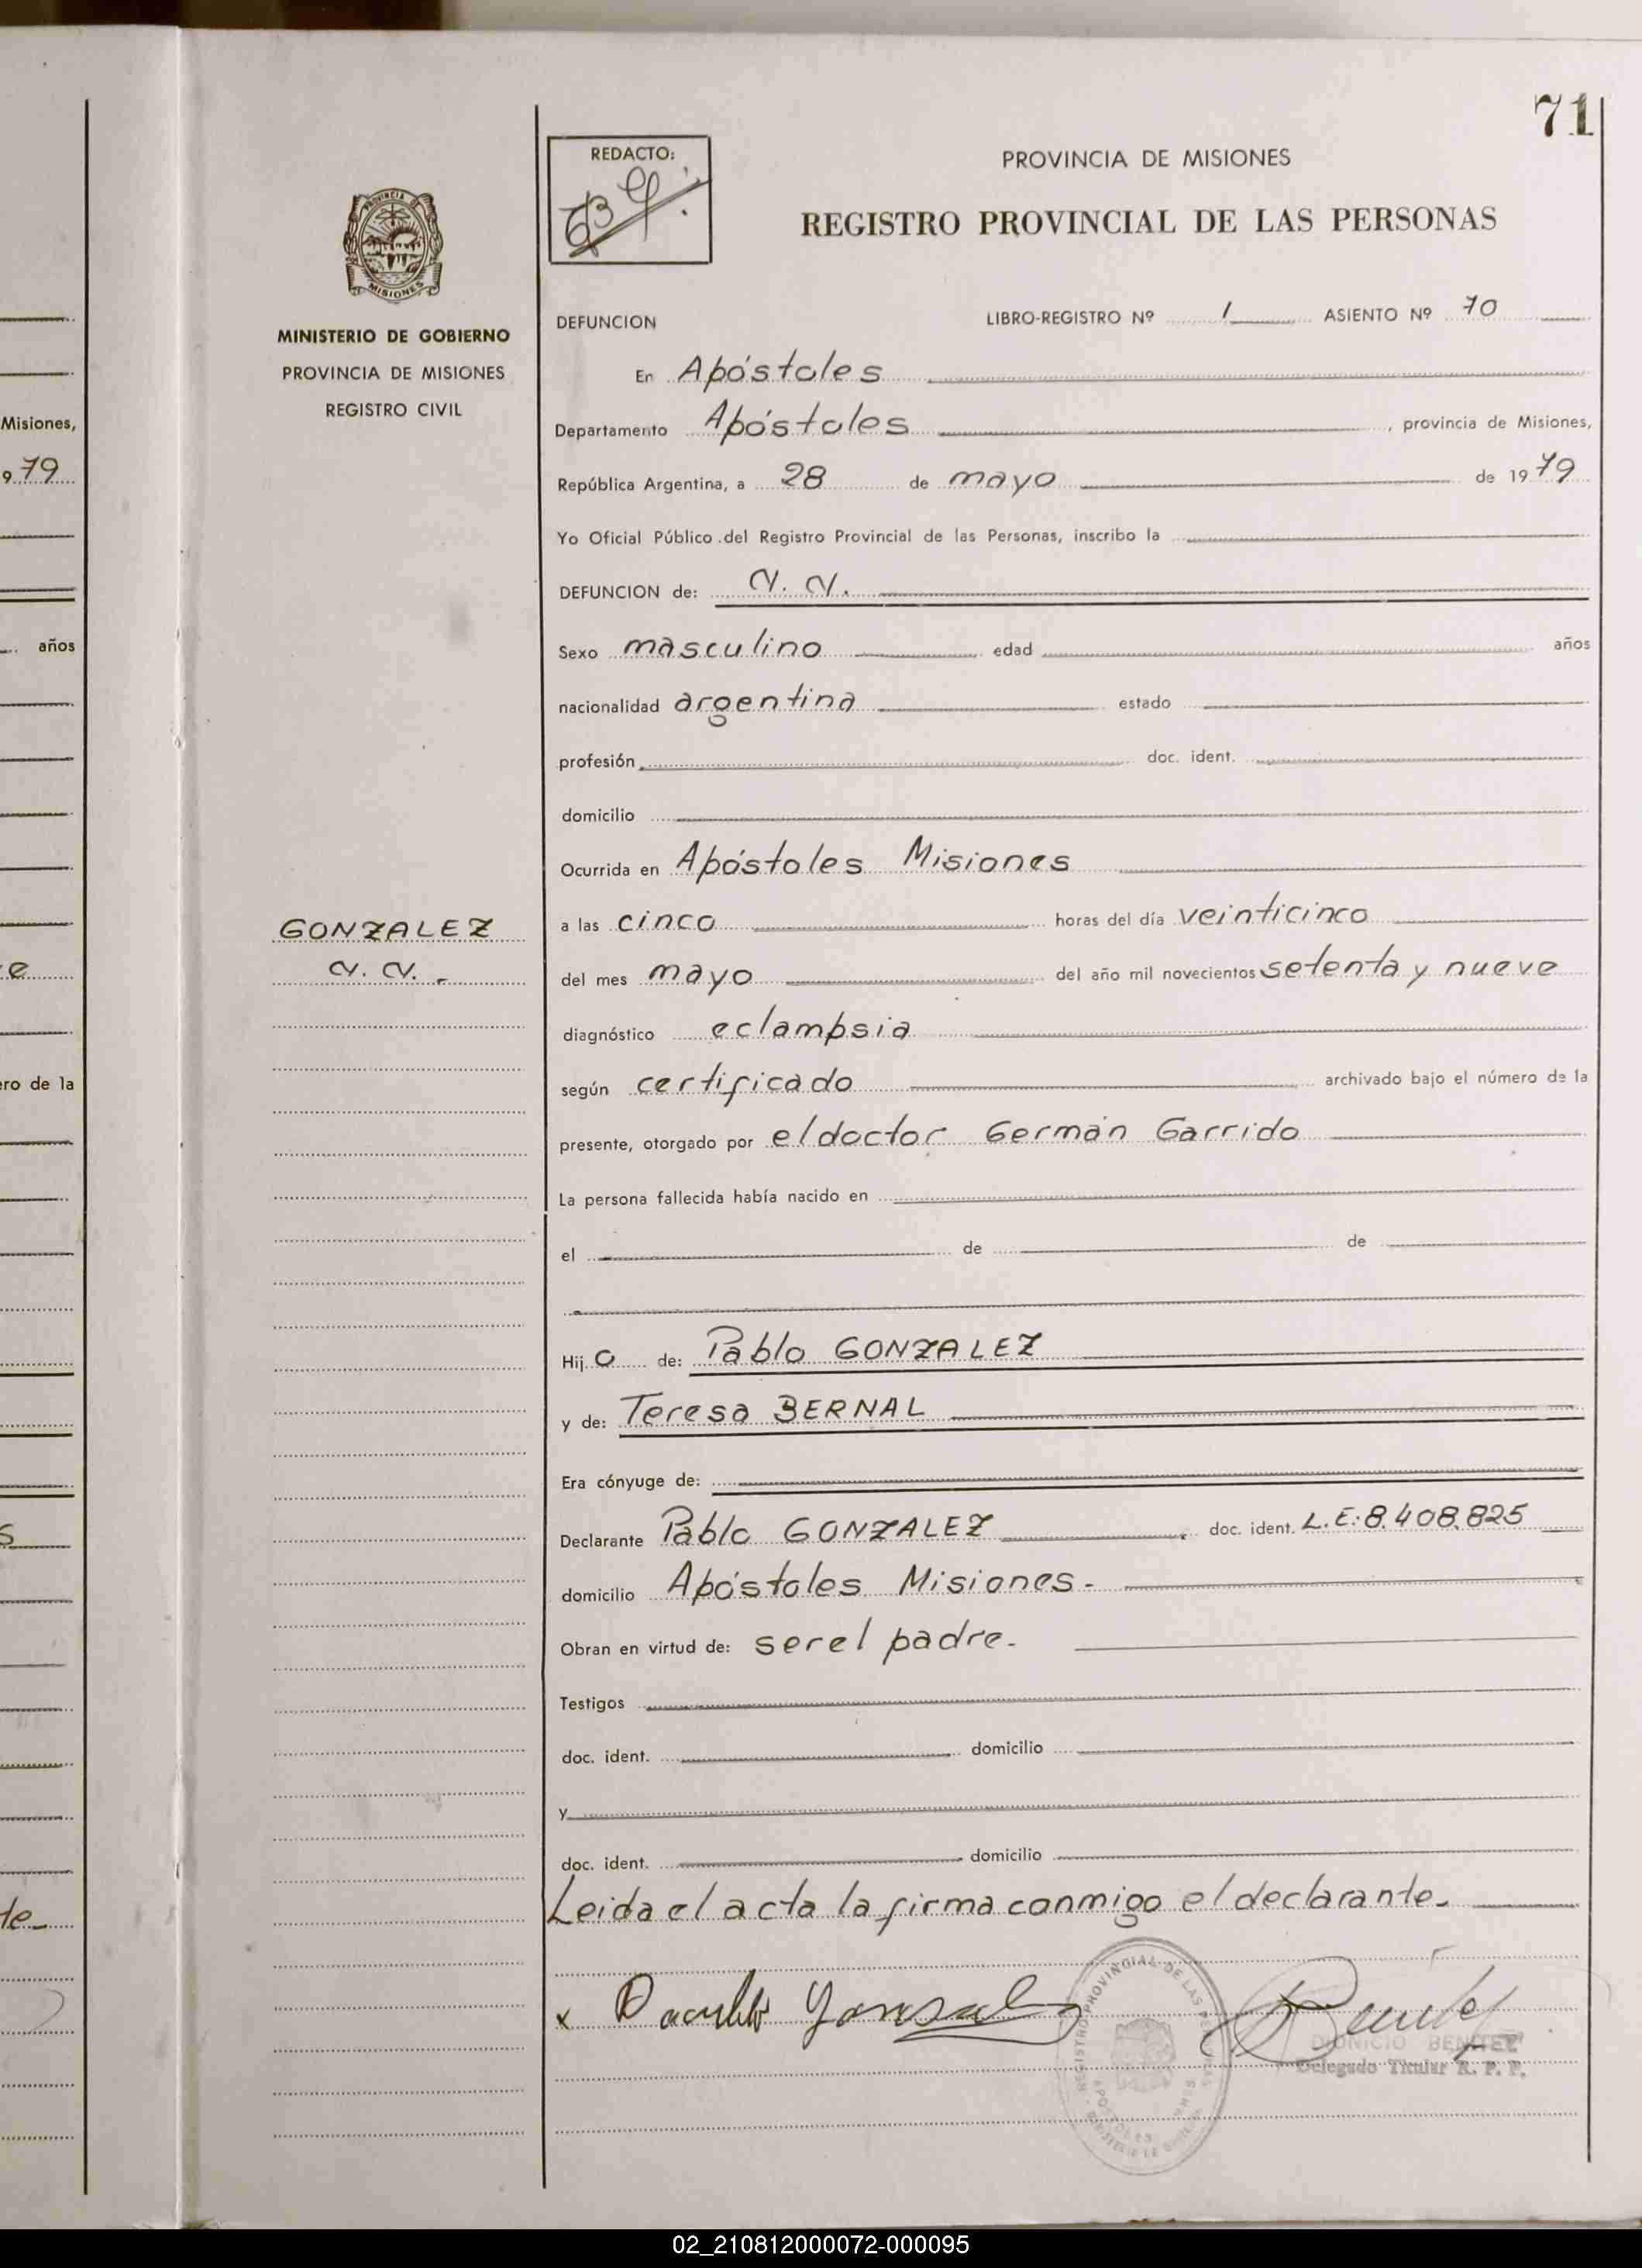 71
REDACTO:
PROVINCIA DE MISIONES
REGISTRO PROVINCIAL DE LAS PERSONAS
PROVINCIA
MISIONES
MINISTERIO DE GOBIERNO
PROVINCIA DE MISIONES
REGISTRO CIVIL
DEFUNCION LIBRO-REGISTRO Nº 1 ASIENTO Nº 70
En Apóstoles
Misiones, Departamento Apóstoles, provincia de Misiones,
9 79 República Argentina, a 28 de mayo de 1979
Yo Oficial Público del Registro Provincial de las Personas, inscribo la
DEFUNCION de: N. N.
años Sexo masculino edad años
nacionalidad argentina estado
profesión doc. ident.
domicilio
Ocurrida en Apóstoles Misiones
GONZALEZ a las cinco horas del día veinticinco
N. N. - del mes mayo del año mil novecientos setenta y nueve
diagnóstico eclampsia
ero de la según certificado archivado bajo el número de la
presente, otorgado por el doctor Germán Garrido
La persona fallecida había nacido en
el de de
Hijo de: Pablo GONZALEZ
y de: Teresa BERNAL
Era cónyuge de:
Declarante Pablo GONZALEZ, doc. ident. L.E: 8.408.825
domicilio Apóstoles Misiones.-
Obran en virtud de: ser el padre.-
Testigos
doc. ident. domicilio
y
doc. ident. domicilio
te- Leida el acta la firma conmigo el declarante.-
x Gonzalez Benitez
REGISTRO PROVINCIAL DE LAS PERSONAS
APOSTOLES
DIONICIO BENITEZ
Delegado Titular R. P. P.
02_210812000072-000095